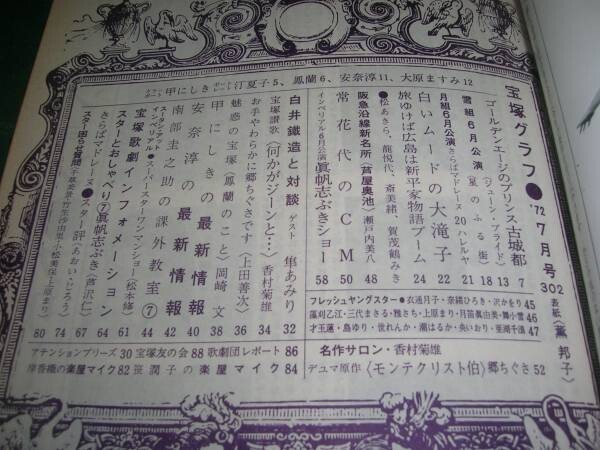 宝塚グラフ●'72 7月号 302
表紙(薫 邦子)
ゴールデンエージのプリンス古城都 7
(ジューン・ブライド) 13
雪組6月公演(星のふる街) 18
月組6月公演(さらばマドレーヌ 20 ハレルヤ 21
白いムードの大滝子 22
旅ゆけば広島は新平家物語ブーム 24
●松あきら、麻さち、龍悦代、斎美緒、賀茂鶴みき
阪急沿線新名所(芦屋奥池)瀬戸内美八 48
常花代のCM 50
インペリアル6月公演 眞帆志ぶきショー 58
甲にしき 汀夏子5、鳳蘭6、安奈淳11、大原ますみ12
白井鐵造と対談 ゲスト 隼あみり 32
宝塚讃歌(何かがジーンと…) 香村菊雄 34
お手やわらかに郷ちぐさです(上田善次) 36
魅惑の宝塚(鳳蘭のこと) 岡崎 文 38
甲にしきの最新情報 40
安奈淳の最新情報 42
南部圭之助の課外教室⑦ 44
スーパースターワンマンショー(松本修)
宝塚歌劇インフォメーション
スターとおしゃべり(7)眞帆志ぶき
さらばマドレーヌ●スター評(あおい・じろう) 74
スター困らせ質問 80
フレッシュヤングスター●衣通月子・奈緒ひろき・沢かをり 45
藤刈乙江・三代まさる・雅さち・上原まり・月笛眞由美・舞小雪 46
才玉蓮・島ゆり・世れんか・潮はるか・央いおり・亜湖千浪 47
名作サロン・香村菊雄
デュマ原作〈モンテクリスト伯〉郷ちぐさ 52
アテンションプリーズ 30 宝塚友の会 88 歌劇団レポート 86
摩香織の楽屋マイク 82 笹潤子の楽屋マイク 84